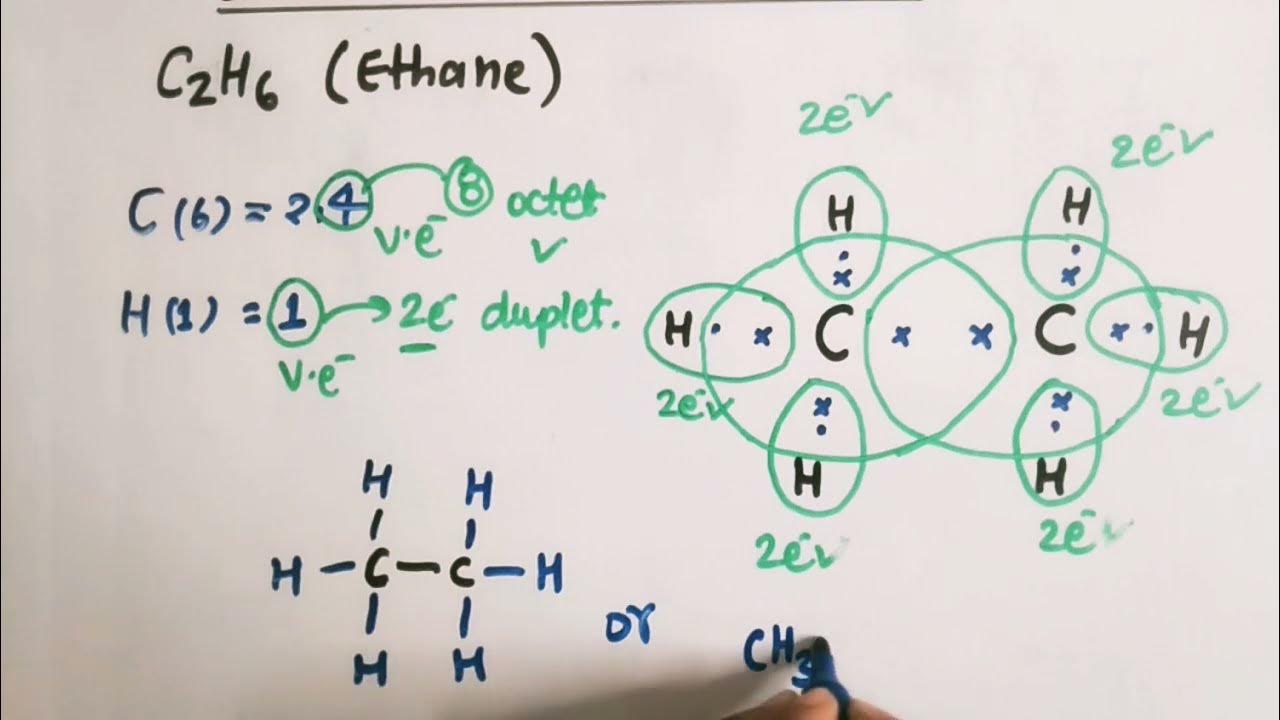 C₂H₆ (Ethane)
C (6) = 2.4 8 octet
v.e⁻ ✓
H (1) = 1 → 2e⁻ duplet.
v.e⁻
2e⁻✓ 2e⁻✓
H H
• •
x x
H • x C x x C x • H
2e⁻✓ 2e⁻✓
x x
• •
H H
2e⁻✓ 2e⁻✓
H H
| |
H – C – C – H
| |
H H
or CH₃